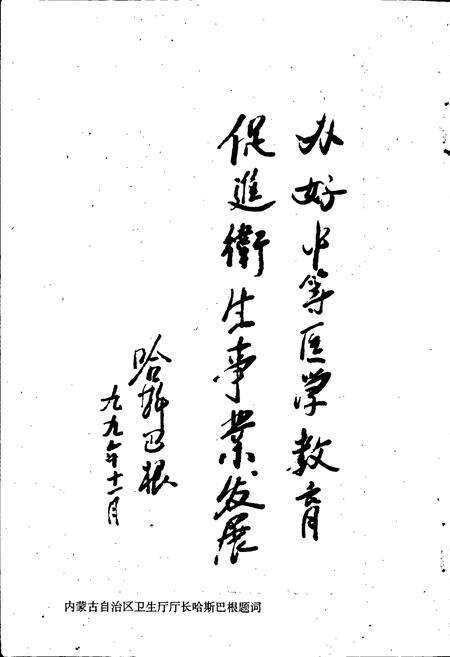 办好中等医学教育
促進衛生事業发展
哈斯巴根
九九年十一月
内蒙古自治区卫生厅厅长哈斯巴根题词